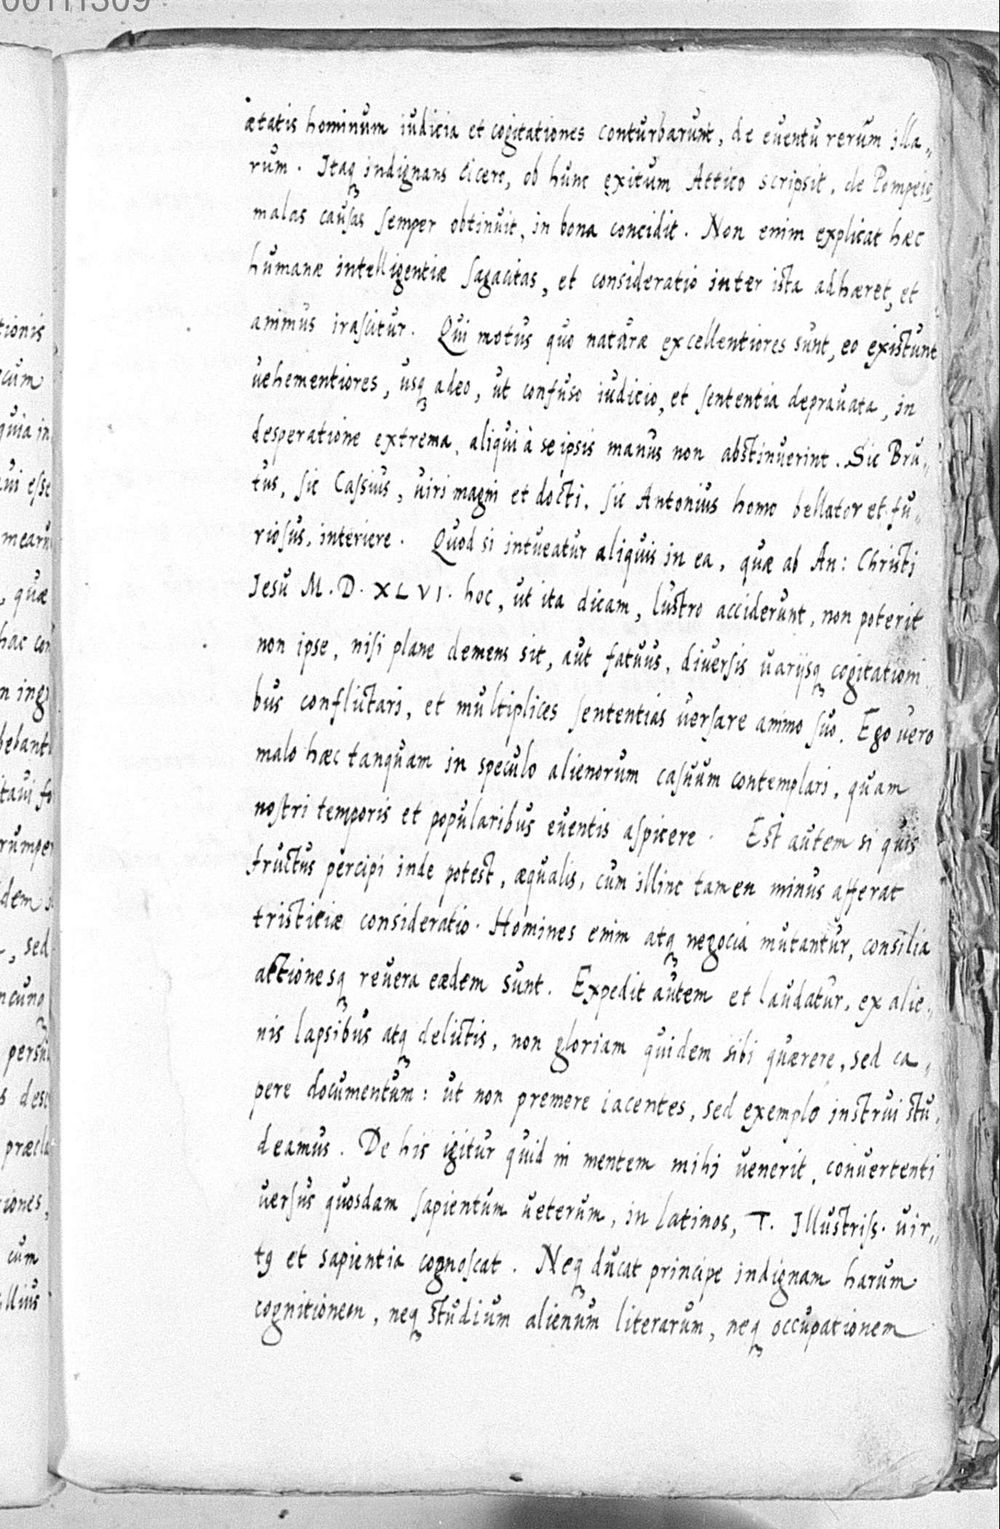 00111309
ætatis hominum iudicia et cogitationes conturbarunt, de euentu rerum illa„
rum. Itaq indignans Cicero, ob hunc exitum Attico scripsit, de Pompeio
malas causas semper obtinuit, in bona concidit. Non enim explicat hæc
humanæ intelligentiæ sagacitas, et consideratio inter ista adhæret, et
animus irascitur. Qui motus quo naturæ excellentiores sunt, eo existunt
uehementiores, usq adeo, ut confuso iudicio, et sententia deprauata, in
desperatione extrema, aliqui à seipsis manus non abstinuerint. Sic Bru„
tus, sic Cassius, uiri magni et docti, sic Antonius homo bellator et fu„
riosus, interiere. Quod si intueatur aliquis in ea, quæ ab An: Christi
Jesu M.D.XLVI. hoc, ut ita dicam, lustro acciderunt, non poterit
non ipse, nisi plane demens sit, aut fatuus, diuersis uarijsq cogitationi„
bus conflictari, et multiplices sententias uersare animo suo. Ego uero
malo hæc tanquam in speculo alienorum casuum contemplari, quam
nostri temporis et popularibus euentis aspicere. Est autem si quis
fructus percipi inde potest, æqualis, cum illinc tamen minus afferat
tristiciæ consideratio. Homines enim atq negocia mutantur, consilia
actionesq reuera eædem sunt. Expedit autem et laudatur, ex alie„
nis lapsibus atq delictis, non gloriam quidem sibi quærere, sed ca„
pere documentum: ut non premere iacentes, sed exemplo instrui stu„
deamus. De his igitur quid in mentem mihi uenerit, conuertenti
uersus quosdam sapientum ueterum, in latinos, T. Illustriss. uir„
tꝰ et sapientia cognoscat. Neq ducat principe indignam harum
cognitionem, neq studium alienum literarum, neq occupationem